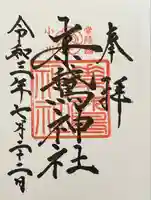 奉拝
素鵞神社
令和三年七月二十二日